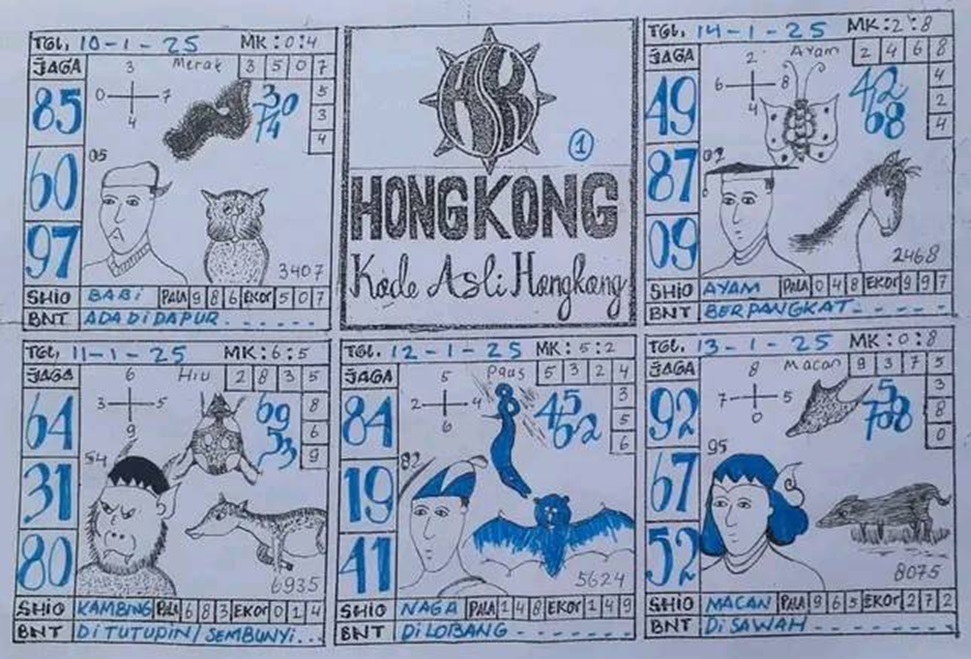 TGL. 10-1-25 MK:0:4
JAGA 3 Merak 3 5 0 7
85 0 7 5
4 3
4
60 05
97
3407
SHIO BABi PALA 9 8 6 EKOR 5 0 7
BNT ADA Di DAPUR - - - - - -
HK
1
HONGKONG
Kode Asli Hongkong
TGL. 14-1-25 MK:2:8
JAGA 2 Ayam 2 4 6 8
49 6 8 42 4
4 68 2
4
87 02
09
2468
SHIO AYAM PALA 0 4 8 EKOR 9 9 7
BNT BERPANGKAT - - - - -
TGL. 11-1-25 MK:6:5
JAGA 6 Hiu 2 8 3 5
64 3 5 69 8
9 53 6
9
31 54
80
6935
SHIO KAMBING PALA 6 8 3 EKOR 0 1 4
BNT Di TUTUPIN/SEMBUNYi...
TGL. 12-1-25 MK:5:2
JAGA 5 Paus 5 3 2 4
84 2 4 45 3
6 62 5
6
19 82
41
5624
SHIO NAGA PALA 1 4 8 EKOR 1 4 9
BNT Di LOBANG - - - - - -
TGL. 13-1-25 MK:0:8
JAGA 8 Macan 9 3 7 5
92 7 5 3
0 8
0
67 95
52
8075
SHIO MACAN PALA 9 6 5 EKOR 2 7 2
BNT Di SAWAH - - - - - -